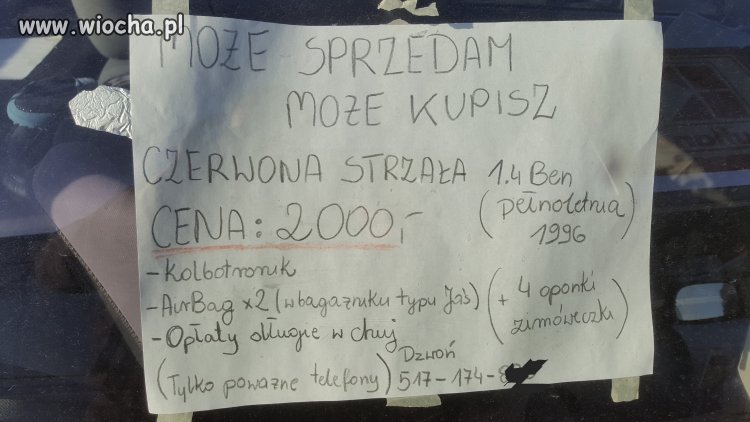 www.wiocha.pl
MOŻE SPRZEDAM
MOŻE KUPISZ
CZERWONA STRZAŁA 1.4 Ben
(pełnoletnia)
1996
CENA: 2000,-
-Kolbotronik
-AirBag x2 (w bagażniku typu Jaś) (+ 4 oponki
zimóweczki)
-Opłaty długie w chuj
(Tylko poważne telefony) Dzwoń
517-174-8